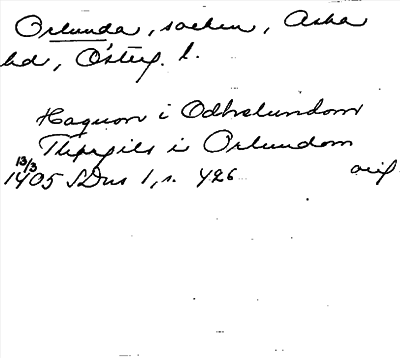 Orlunda, socken, Aska
hd, Österg. l.
Haquon i Odhslundom
Thyrgils i Orlundom
13/3
1405 SDns 1, s. 426 orig